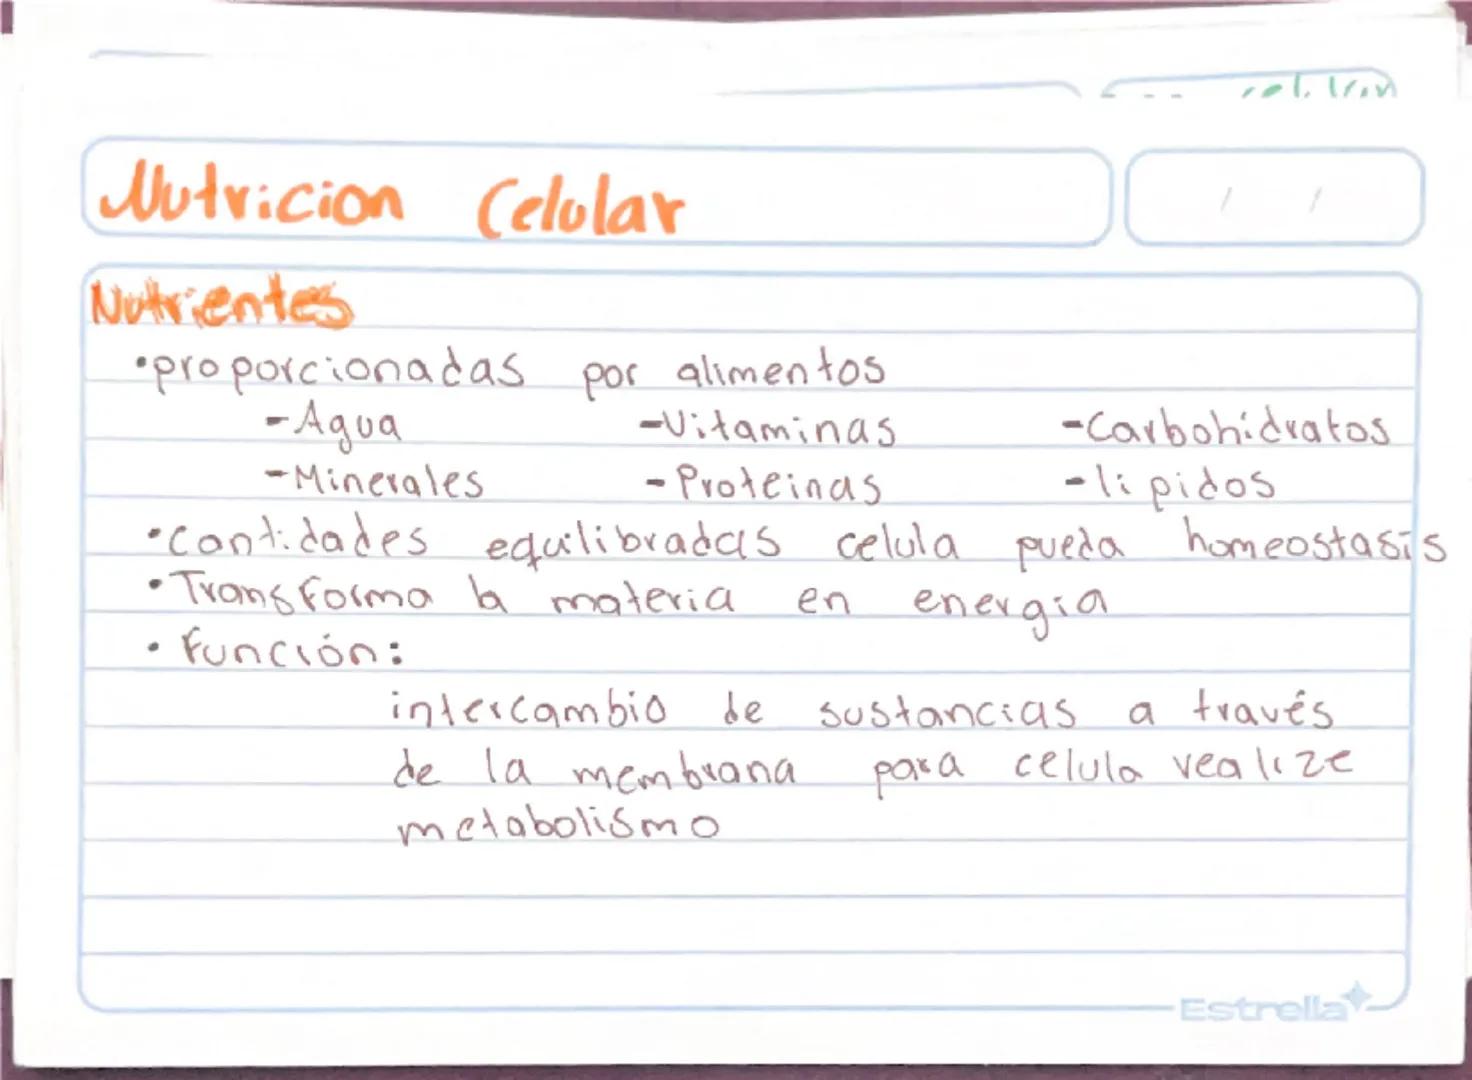 Nutricion Celular
/ /
Nutrientes
•proporcionadas por alimentos
-Agua -Vitaminas -Carbohidratos
-Minerales -Proteinas -lipidos
•Cantidades equilibradas celula pueda homeostasis
•Transforma la materia en energia
•función:
intercambio de sustancias a través
de la membrana para celula realize
metabolismo
Estrella